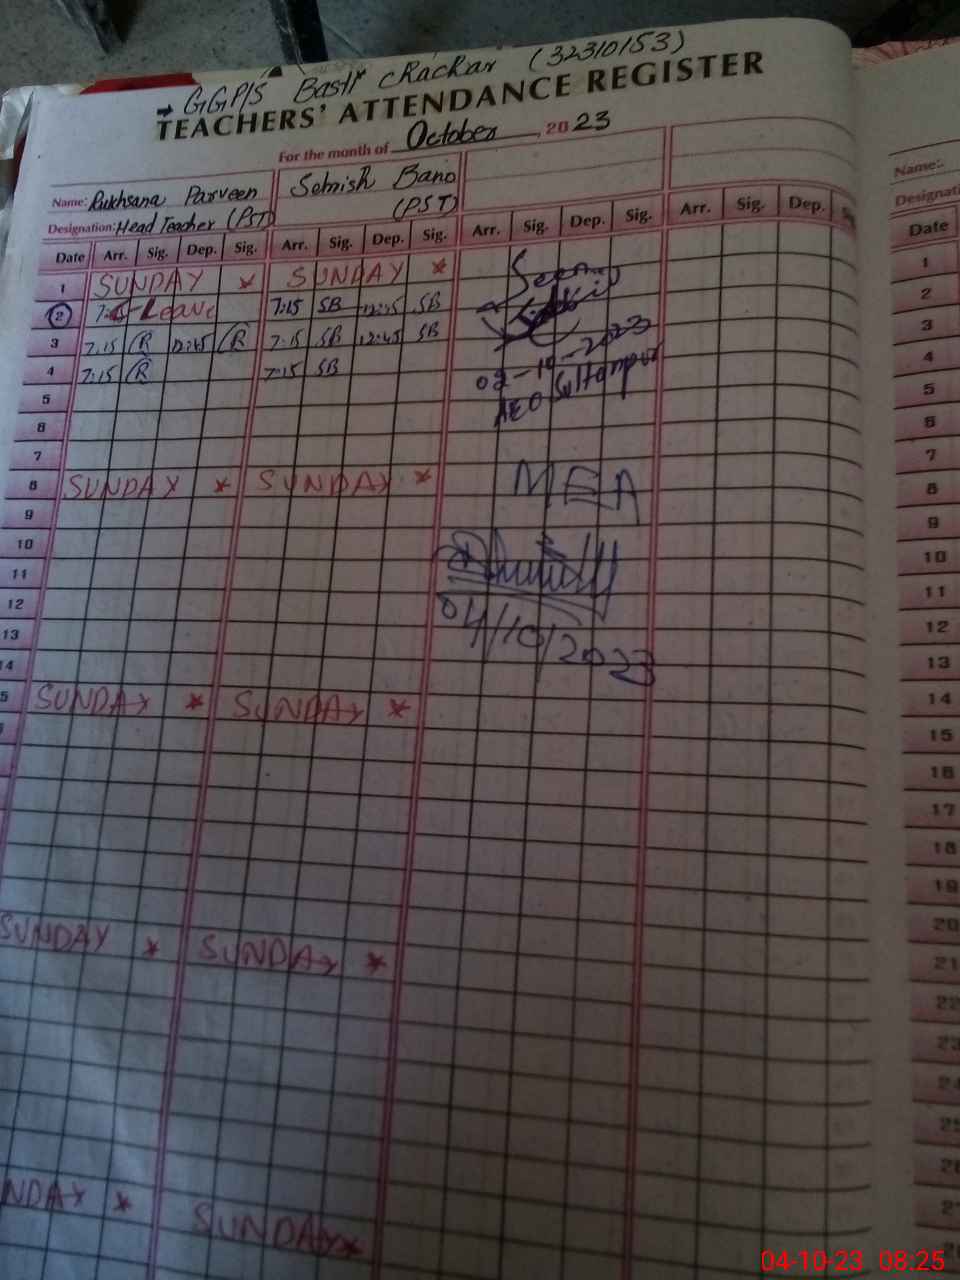 → GGP/S Basti chachar (32310153)
TEACHERS' ATTENDANCE REGISTER
For the month of October, 2023
Name: Rukhsana Parveen Sehrish Bano
Designation: Head Teacher (PST) (PST)
Date Arr. Sig. Dep. Sig. Arr. Sig. Dep. Sig. Arr. Sig. Dep. Sig. Arr. Sig. Dep.
1 SUNDAY * SUNDAY *
2 Leave 7:15 SB 12:45 SB
3 7:15 R 12:45 R 7:15 SB 12:45 SB
4 7:15 R 7:15 SB
02-10-2023
AEO Sultanpur
5
6
7
8 SUNDAY * SUNDAY *
MEA
9
10
11
12
04/10/2023
13
14
5 SUNDAY * SUNDAY *
SUNDAY * SUNDAY *
NDAY * SUNDAY *
Name:-
Designati
Date
1
2
3
4
5
6
7
8
9
10
11
12
13
14
15
16
17
18
19
20
21
22
23
24
25
26
04-10-23 08:25